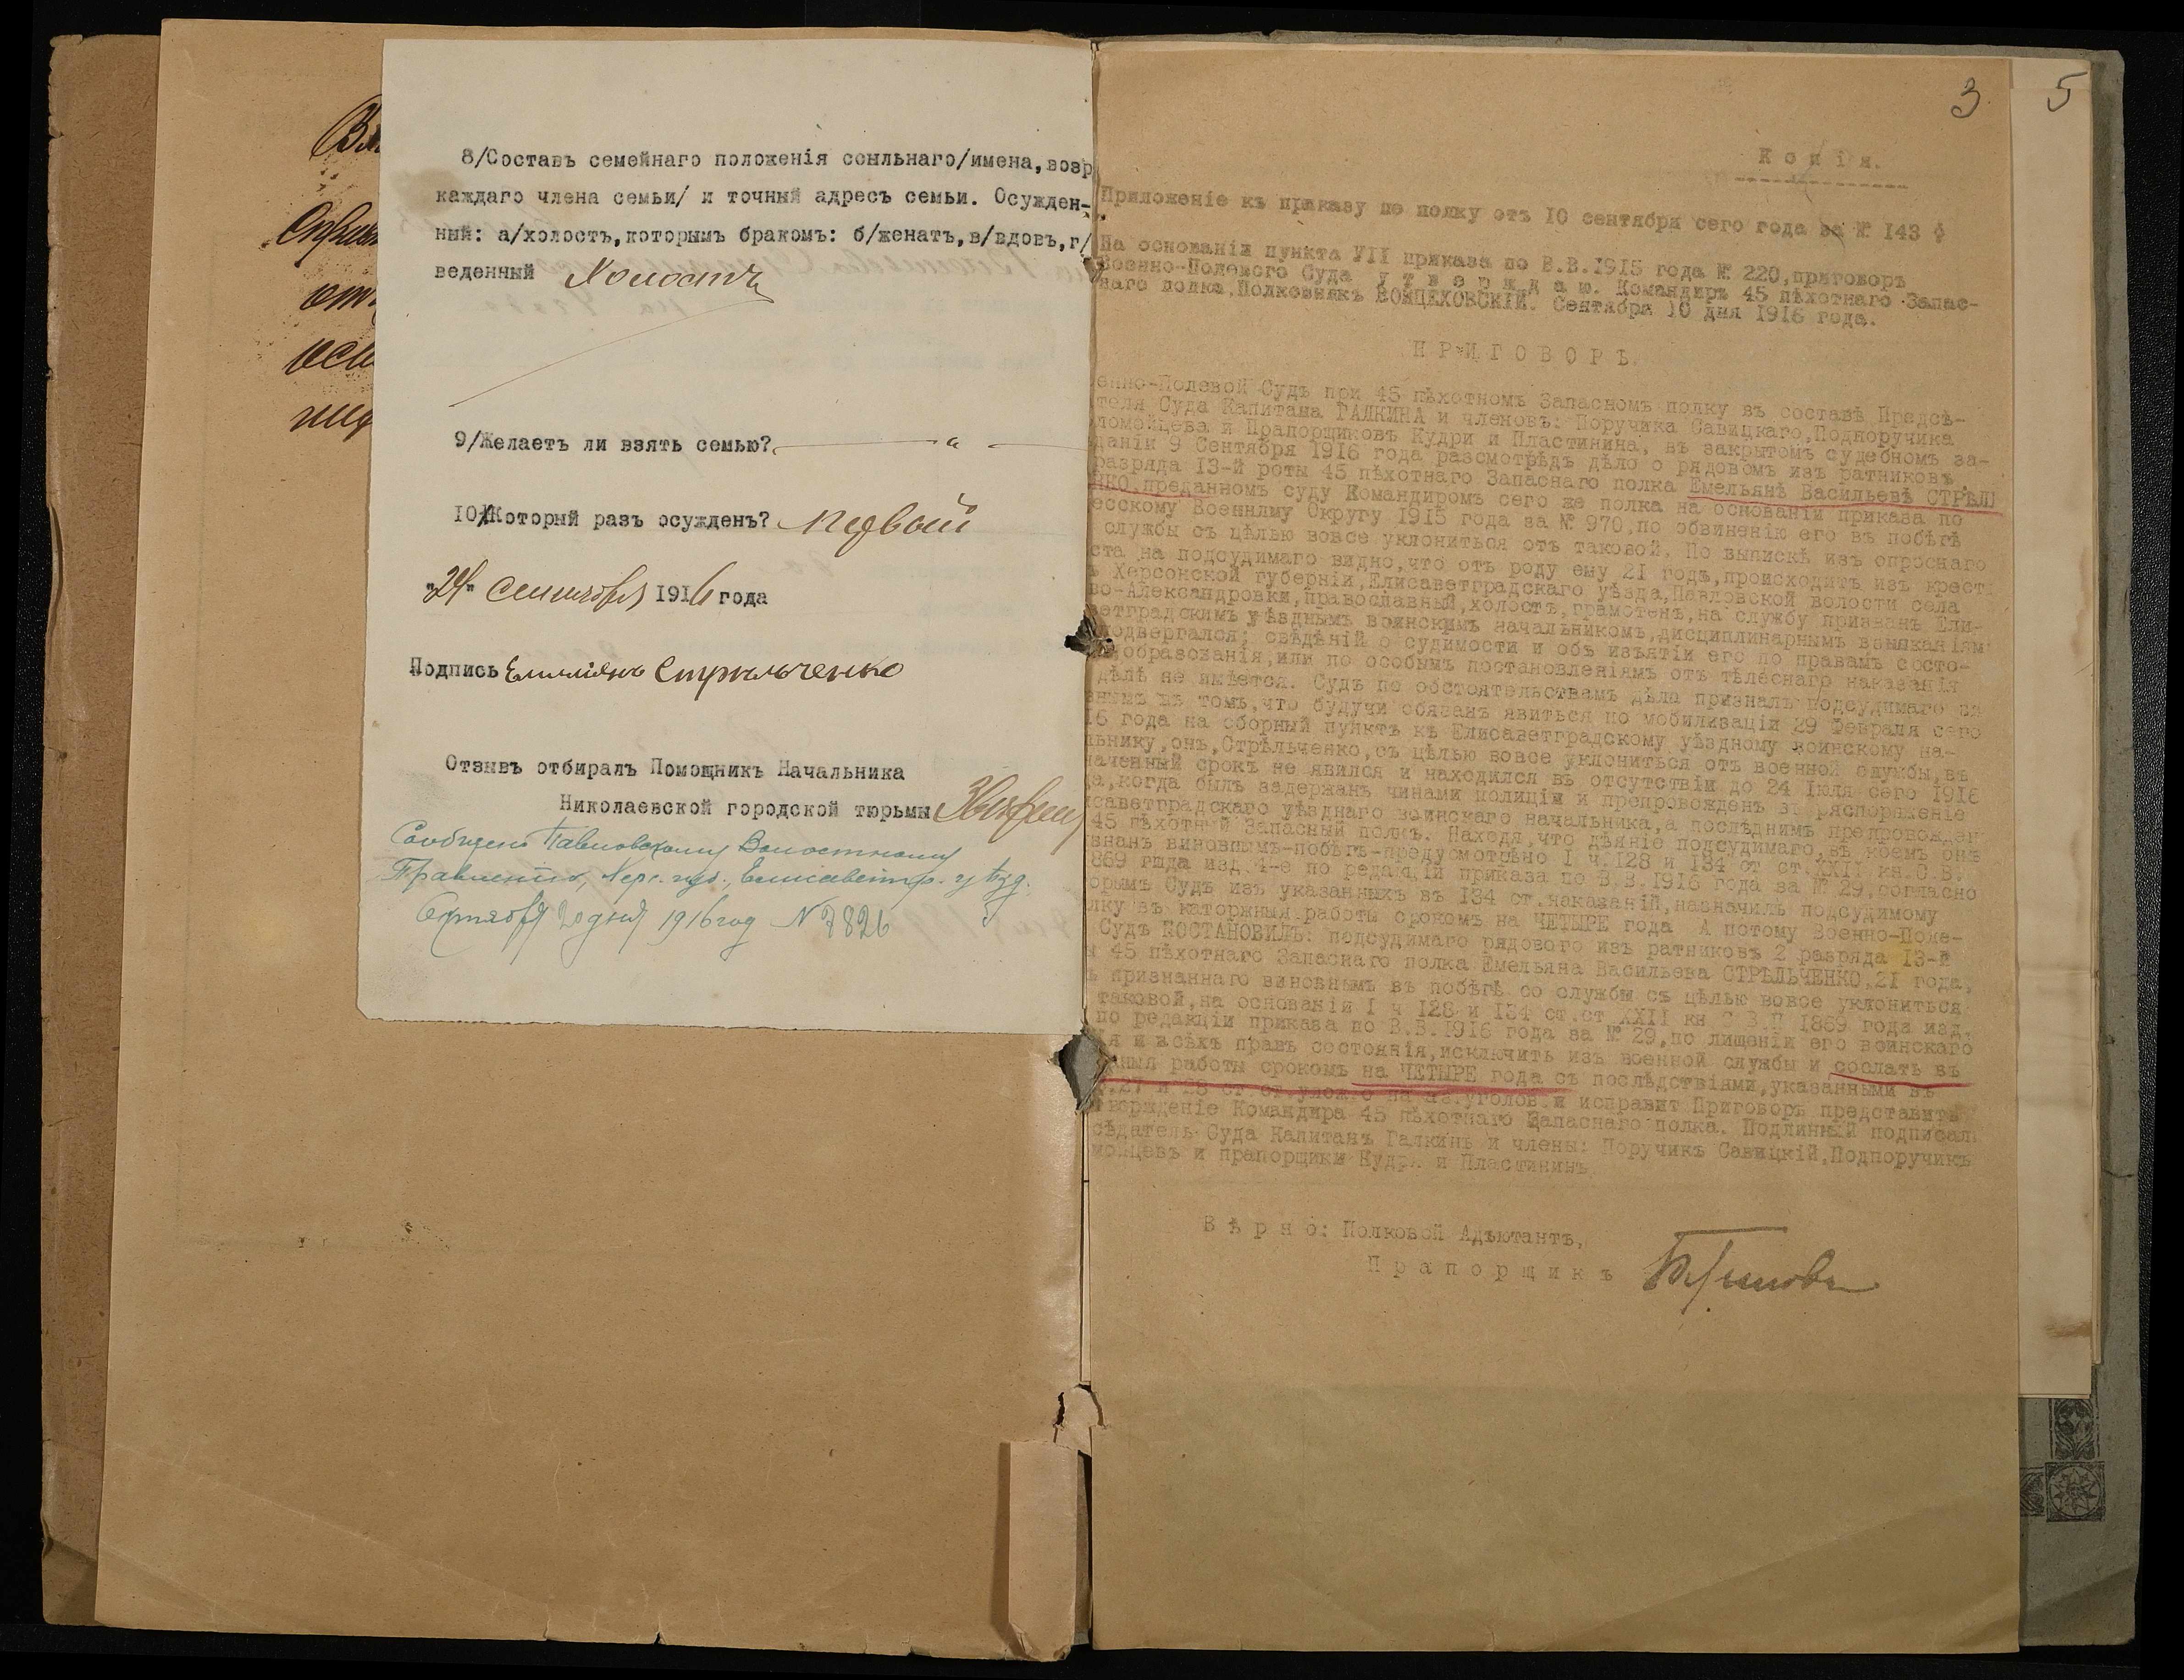 8/Составъ семейнаго положенія ссыльнаго/имена,возр
каждаго члена семьи/ и точный адресъ семьи. Осужден-
ный: а/холост,которымъ бракомъ: б/женатъ,в/вдовъ,г/
веденный Холостъ
9/Желаетъ ли взять семью? — " —
10/Который разъ осужденъ? Первый
"24" Сентября 1916 года
Подпись Емиліянъ Стрильченко
Отзывъ отбиралъ Помощникъ Начальника
Николаевской городской тюрьмы
Сообщено Павловскому Волостному
Правленію, Херс. губ., Елисаветгр. уѣзд.
20 дня 1916 год N 7826
3
5
Копія.
Приложеніе къ приказу по полку отъ 10 сентября сего года за № 143
На основаніи пункта УІІ приказа по В.В.1915 года № 220,приговоръ
Военно-Полевого Суда утверждаю. Командиръ 45 пѣхотнаго Запас-
наго полка,Полковникъ ВОЙЦЕХОВСКІЙ. Сентября 10 дня 1916 года.
ПРИГОВОРЪ.
енно-Полевой Судъ при 45 пѣхотномъ Запасномъ полку въ составѣ Предсѣ-
теля Суда Капитана ГАЛКИНА и членовъ: Поручика Савицкаго,Подпоручика
ломойцева и Прапорщиковъ Кудри и Пластинина, въ закрытомъ судебномъ за-
даніи 9 Сентября 1916 года разсмотрѣлъ дѣло о рядовомъ изъ ратниковъ
разряда 13-й роты 45 пѣхотнаго Запаснаго полка Емельянѣ Васильевѣ СТРѢЛЬ
НКО,преданномъ суду Командиромъ сего же полка на основаніи приказа по
есскому Военнлму Округу 1915 года за № 970,по обвиненію его въ побѣгѣ
службы съ цѣлью вовсе уклониться отъ таковой. По выпискѣ изъ опроснаго
ста на подсудимаго видно,что отъ роду ему 21 годъ,происходитъ изъ крест
ъ Херсонской губерніи,Елисаветградскаго уѣзда,Павловской волости села
во-Александровки,православный,холостъ,грамотенъ,на службу призванъ Ели-
ветградскимъ уѣзднымъ воинскимъ начальникомъ,дисциплинарнымъ взысканіям
подвергался; свѣдѣній о судимости и объ изъятіи его по правамъ состо-
образованія,или по особымъ постановленіямъ отъ тѣлеснаго наказанія
дѣлѣ не имѣется. Судъ по обстоятельствамъ дѣла призналъ подсудимаго ви
внымъ въ томъ,что будучи обязанъ явиться по мобилизаціи 29 Февраля сего
16 года на сборный пунктъ къ Елисаветградскому уѣздному воинскому на-
льнику,онъ,Стрѣльченко,съ цѣлью вовсе уклониться отъ военной службы,въ
наченный срокъ не явился и находился въ отсутствіи до 24 Іюля сего 1916
да,когда былъ задержанъ чинами полиціи и препровожденъ въ распоряженіе
исаветградскаго уѣзднаго воинскаго начальника,а послѣднимъ препровожден
45 пѣхотный Запасный полкъ. Находя,что дѣяніе подсудимаго,въ коемъ онъ
знанъ виновнымъ-побѣгъ-предусмотрѣно I ч.128 и 134 ст ст.ХХІІ кн.С.В.
869 гшда изд.4-е по редакціи приказа по В.В.1916 года за № 29,согласно
орымъ Судъ изъ указанныхъ въ 134 ст.наказаній,назначилъ подсудимому
лку въ каторжныя работы срокомъ на ЧЕТЫРЕ года А потому Военно-Поле-
Судъ ПОСТАНОВИЛЪ: подсудимаго рядового изъ ратниковъ 2 разряда 13-й
ы 45 пѣхотнаго Запаснаго полка Емельяна Васильева СТРѢЛЬЧЕНКО,21 года,
ъ признаннаго виновнымъ въ побѣгѣ со службы съ цѣлью вовсе уклониться
таковой,на основаніи I ч 128 и 134 ст.ст ХХІІ кн С.В.П 1869 года изд.
по редакціи приказа по В.В.1916 года за № 29,по лишеніи его воинскаго
я и всѣхъ правъ состоянія,исключить изъ военной службы и сослать въ
жныя работы срокомъ на ЧЕТЫРЕ года съ послѣдствіями,указанными въ
.27 и 28 ст ст.уложъ о нак.уголов.и исправит Приговоръ представить
тержденіе Командира 45 пѣхотнаго Запаснаго полка. Подлинный подписал
сѣдатель Суда Капитанъ Галкинъ и члены: Поручикъ Савицкій,Подпоручикъ
мойцевъ и прапорщики Кудря и Пластининъ
Вѣрно: Полковой Адъютантъ,
Прапорщикъ